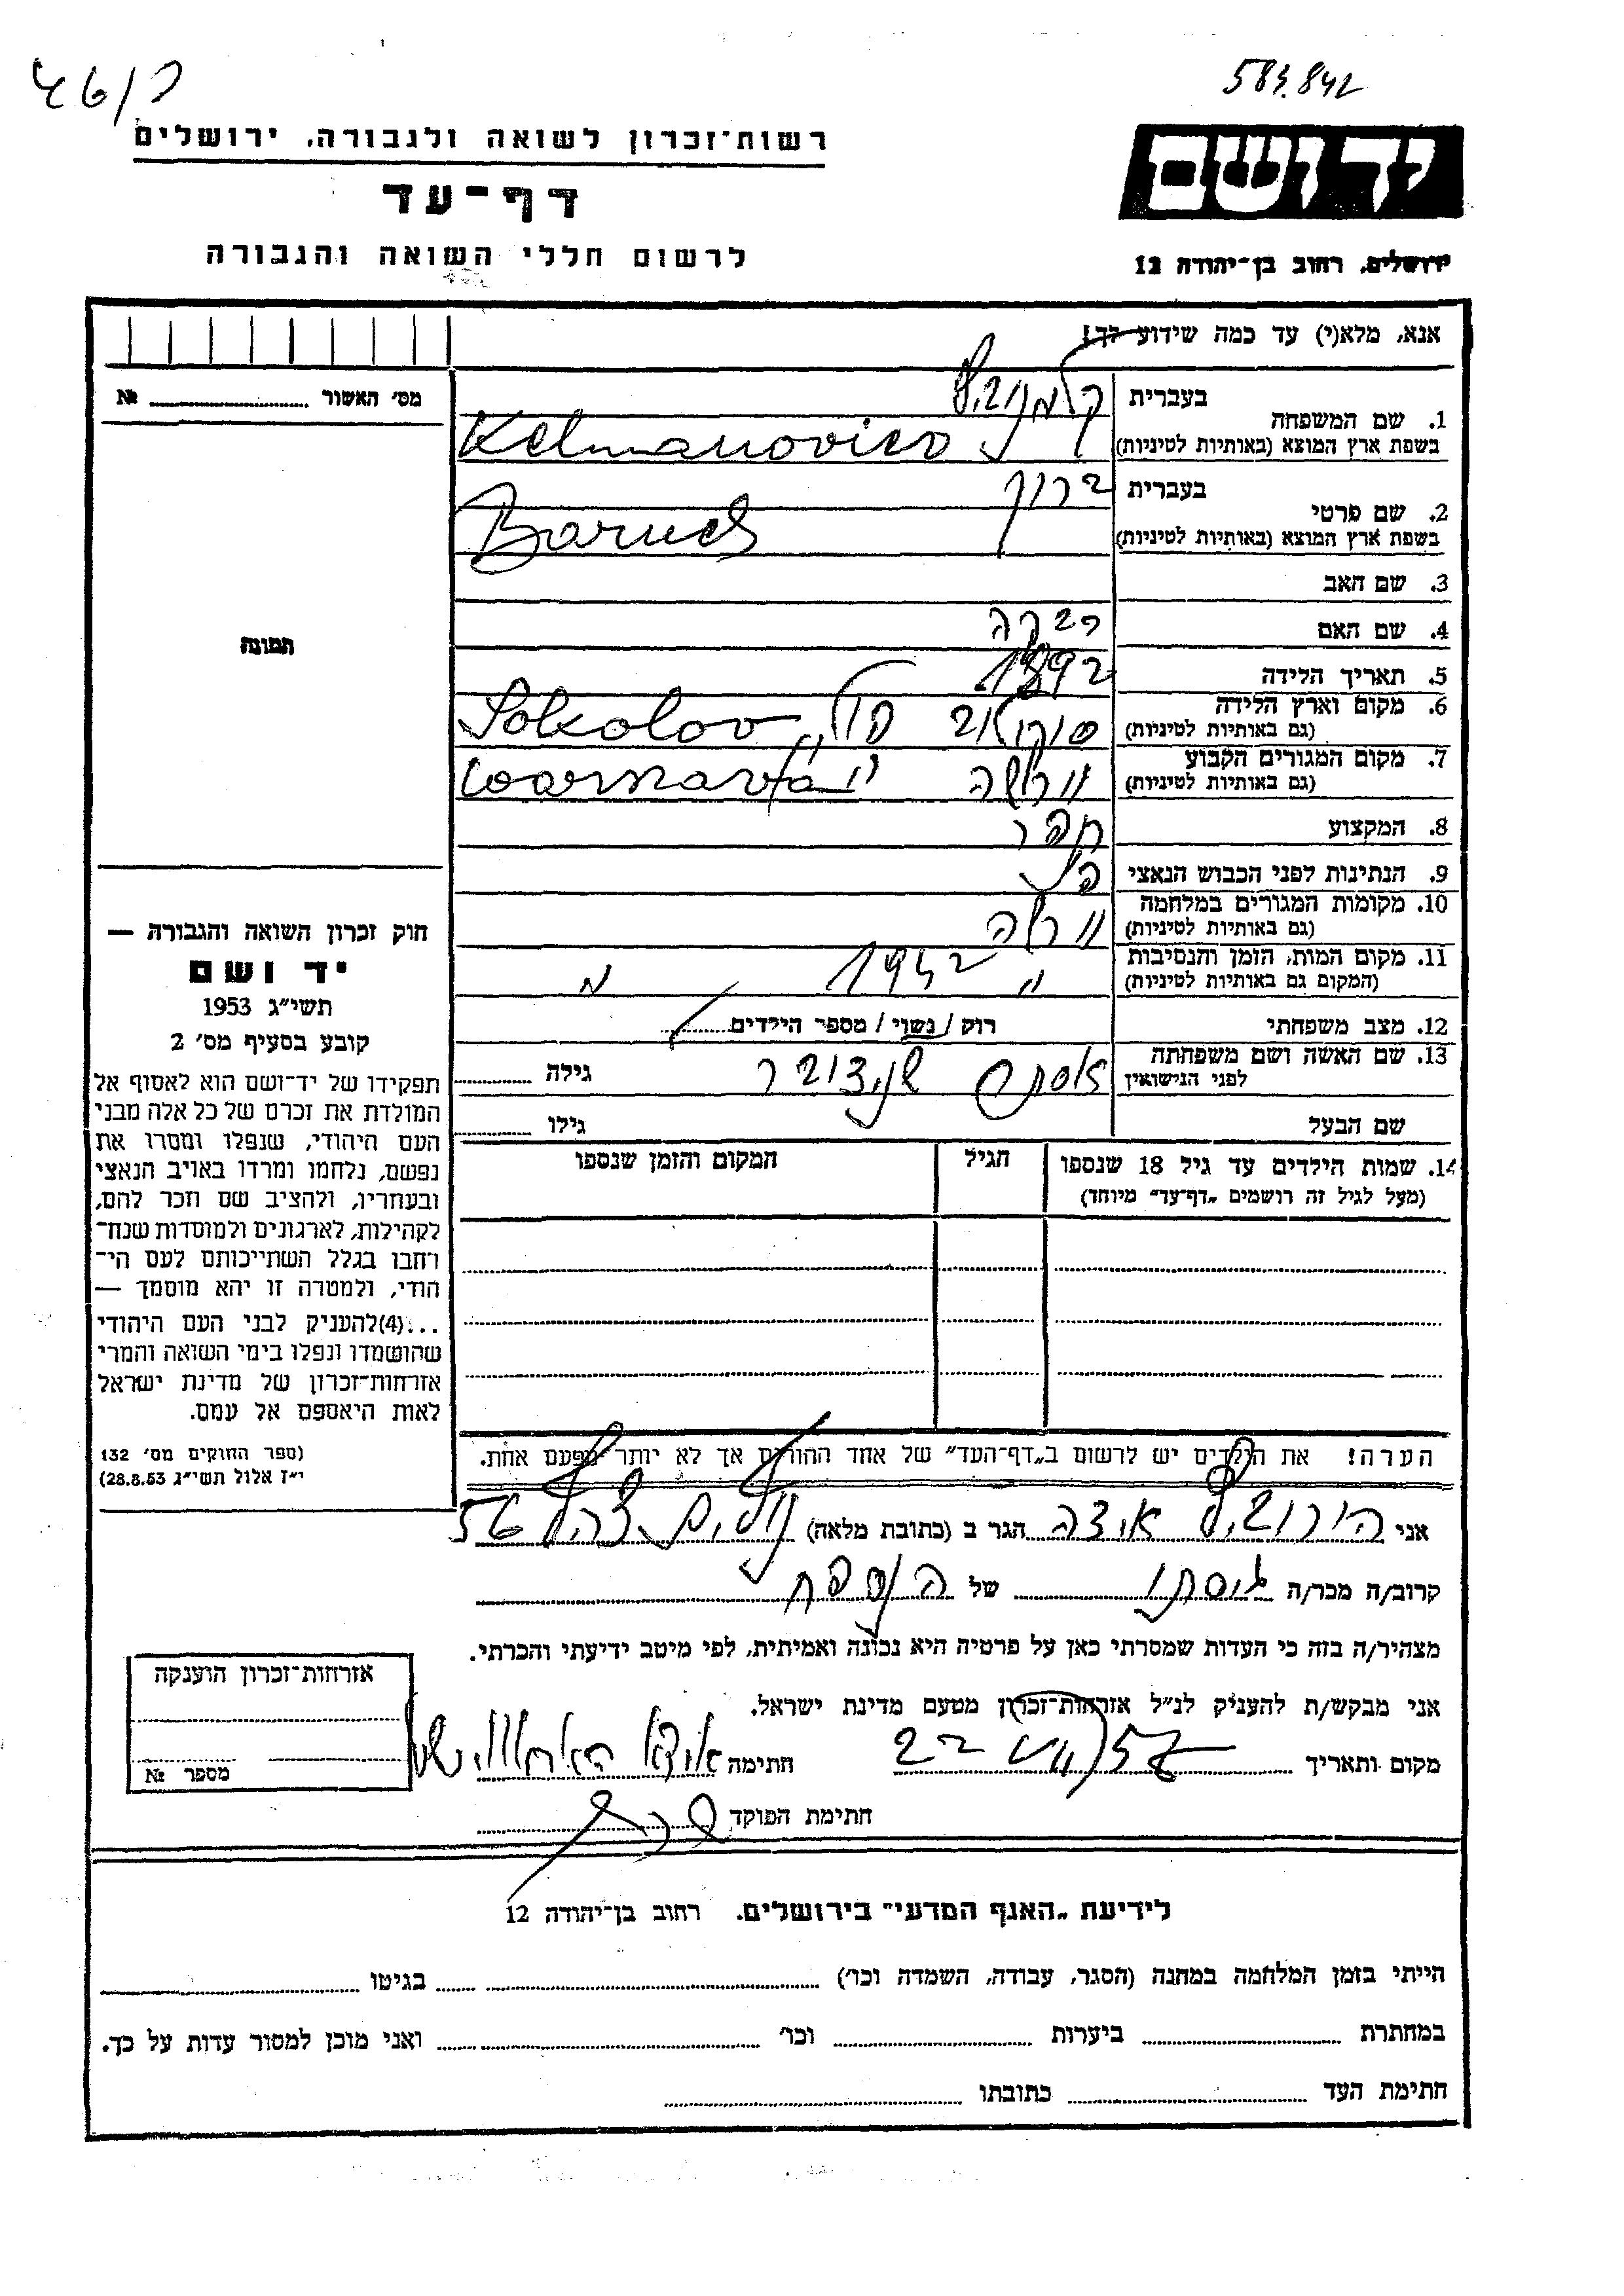 583.842
46/ק
רשות־זכרון לשואה ולגבורה, ירושלים
יד ושם
דף־עד
לרשום חללי השואה והגבורה
ירושלים, רחוב בן־יהודה 12
אנא, מלא(י) עד כמה שידוע לך!
מס' האשור №
1. שם המשפחה
בעברית קלמנוביץ
בשפת ארץ המוצא (באותיות לטיניות) Kelmanovico
2. שם פרטי
בעברית ברוך
בשפת ארץ המוצא (באותיות לטיניות) Baruch
3. שם האב
4. שם האם רבקה
תמונה
5. תאריך הלידה 1892
6. מקום וארץ הלידה
(גם באותיות לטיניות) סוקולוב פולין Sokolov
7. מקום המגורים הקבוע
(גם באותיות לטיניות) וורשה " Warszava
8. המקצוע
9. הנתינות לפני הכבוש הנאצי פל
10. מקומות המגורים במלחמה
(גם באותיות לטיניות) וורשה
11. מקום המות, הזמן והנסיבות
(המקום גם באותיות לטיניות) " 1942
12. מצב משפחתי רווק / נשוי / מספר הילדים
13. שם האשה ושם משפחתה
לפני הנישואין אסתר גילה
שם הבעל גילו
14. שמות הילדים עד גיל 18 שנספו הגיל המקום והזמן שנספו
(מעל לגיל זה רושמים „דף־עד” מיוחד)
חוק זכרון השואה והגבורה —
יד ושם
תשי״ג 1953
קובע בסעיף מס' 2
תפקידו של יד־ושם הוא לאסוף אל
המולדת את זכרם של כל אלה מבני
העם היהודי, שנפלו ומסרו את
נפשם, נלחמו ומרדו באויב הנאצי
ובעוזריו, ולהציב שם וזכר להם,
לקהילות, לארגונים ולמוסדות שנח־
רבו בגלל השתייכותם לעם הי־
הודי, ולמטרה זו יהא מוסמך —
...(4)להעניק לבני העם היהודי
שהושמדו ונפלו בימי השואה והמרי
אזרחות־זכרון של מדינת ישראל
לאות היאספם אל עמם.
(ספר החוקים מס' 132
י״ז אלול תשי״ג 28.8.53)
הערה! את הילדים יש לרשום ב„דף־העד” של אחד ההורים אך לא יותר מפעם אחת.
אני הורוביץ איצה הגר ב (כתובת מלאה) 56
קרוב/ה מכר/ה גיסתו של הנספה
מצהיר/ה בזה כי העדות שמסרתי כאן על פרטיה היא נכונה ואמיתית, לפי מיטב ידיעתי והכרתי.
אני מבקש/ת להעניק לנ״ל אזרחות־זכרון מטעם מדינת ישראל.
מקום ותאריך 22 חתימה
חתימת הפוקד
אזרחות־זכרון הוענקה
מספר №
לידיעת „האגף המדעי” בירושלים. רחוב בן־יהודה 12
הייתי בזמן המלחמה במחנה (הסגר, עבודה, השמדה וכו') בגיטו
במחתרת ביערות וכו' ואני מוכן למסור עדות על כך.
חתימת העד כתובתו